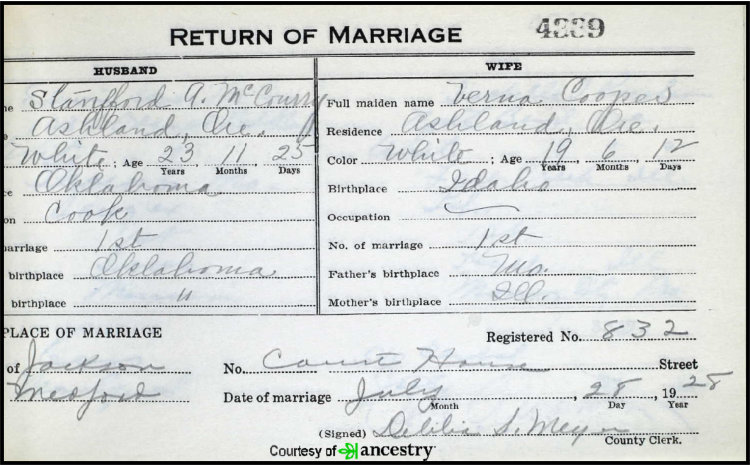 RETURN OF MARRIAGE 4339
HUSBAND WIFE
e Stanfford A. McCourry Full maiden name Verna Cooper
e Ashland, Ore. Residence Ashland, Ore.
White; Age 23 Years 11 Months 25 Days Color White; Age 19 Years 6 Months 12 Days
ce Oklahoma Birthplace Idaho
on Cook Occupation
arriage 1st No. of marriage 1st
birthplace Oklahoma Father's birthplace Mo.
birthplace " Mother's birthplace Ill.
PLACE OF MARRIAGE Registered No. 832
of Jackson No. Court House Street
Medford Date of marriage July Month, 28 Day, 1928 Year
(Signed) S. Meyer County Clerk.
Courtesy of ancestry